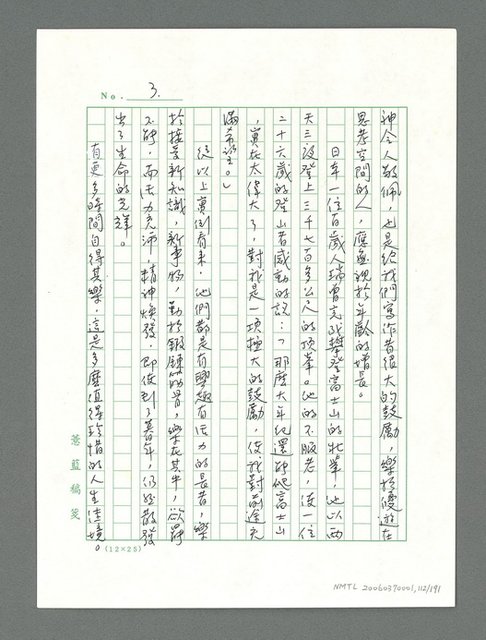 No. 3.
神令人敬佩,也是給我們寫作者很大的鼓勵,樂於優游在
思考空間的人,應無視於年齡的增長。
日本一位百歲人瑞曾完成攀登富士山的壯舉,他以兩
天三夜登上三千七百多公尺的頂峯。他的不服老,使一位
二十六歲的登山者感動的說:「那麼大年紀還能爬富士山
,實在太偉大了,對我是一項極大的鼓勵,使我對前途充
滿希望。」
從以上實例看來,他們都是有興趣有活力的長者,樂
於接受新知識,新事物,勤於鍛鍊筋骨,樂在其中,欲罷
不能,而活力充沛,精神煥發,即使到了暮年,仍能散發
出了生命的光輝。
有更多時間自得其樂,這是多麼值得珍惜的人生佳境。
薏藍稿箋
(12×25)
NMTL 20060370001,112/191